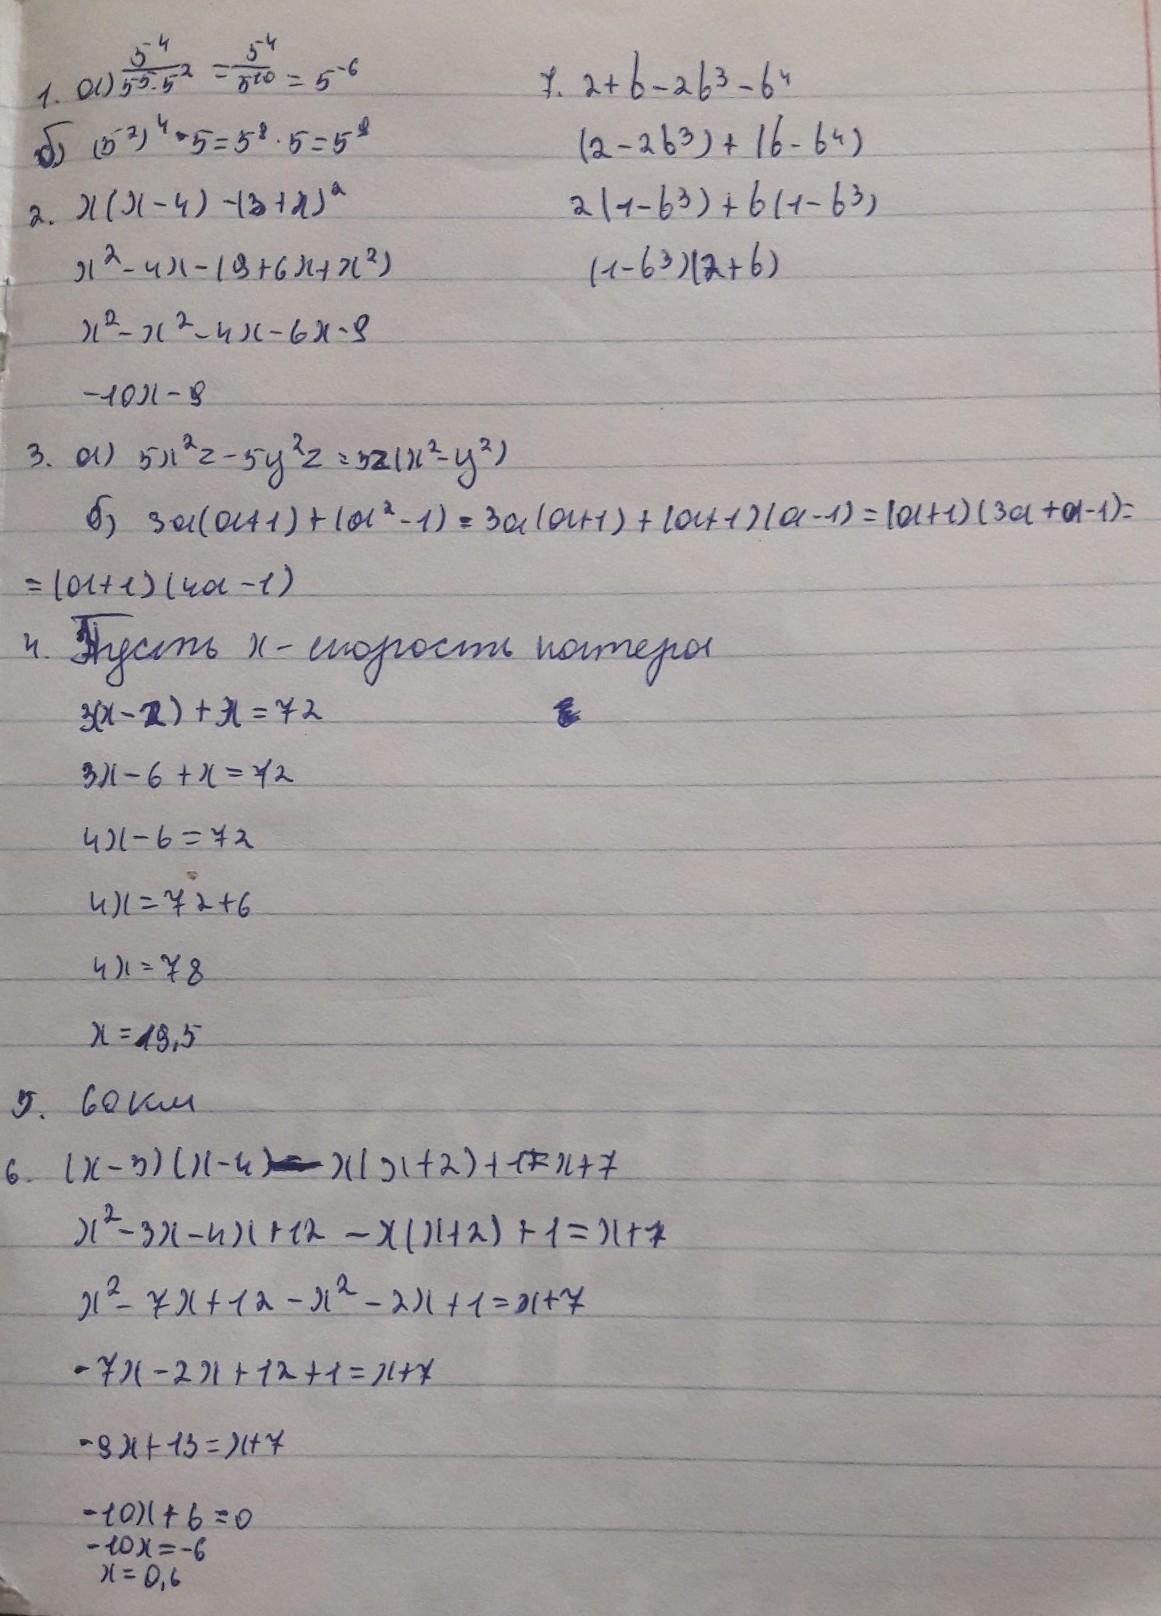 1. а) 5⁴/(5⁵·5²) = 5⁴/5¹⁰ = 5⁻⁶
б) (5²)⁴·5=5⁸·5=5⁹
2. x(x-4)-(3+x)²
x²-4x-(9+6x+x²)
x²-x²-4x-6x-9
-10x-9
3. а) 5x²z-5y²z=5z(x²-y²)
б) 3a(a+1)+(a²-1)=3a(a+1)+(a+1)(a-1)=(a+1)(3a+a-1)=
=(a+1)(4a-1)
4. Пусть x-скорость катера
3(x-2)+x=72
3x-6+x=72
4x-6=72
4x=72+6
4x=78
x=19,5
5. 60км
6. (x-3)(x-4)-x(x+2)+1=x+7
x²-3x-4x+12-x(x+2)+1=x+7
x²-7x+12-x²-2x+1=x+7
-7x-2x+12+1=x+7
-9x+13=x+7
-10x+6=0
-10x=-6
x=0,6
7. 2+b-2b³-b⁴
(2-2b³)+(b-b⁴)
2(1-b³)+b(1-b³)
(1-b³)(2+b)